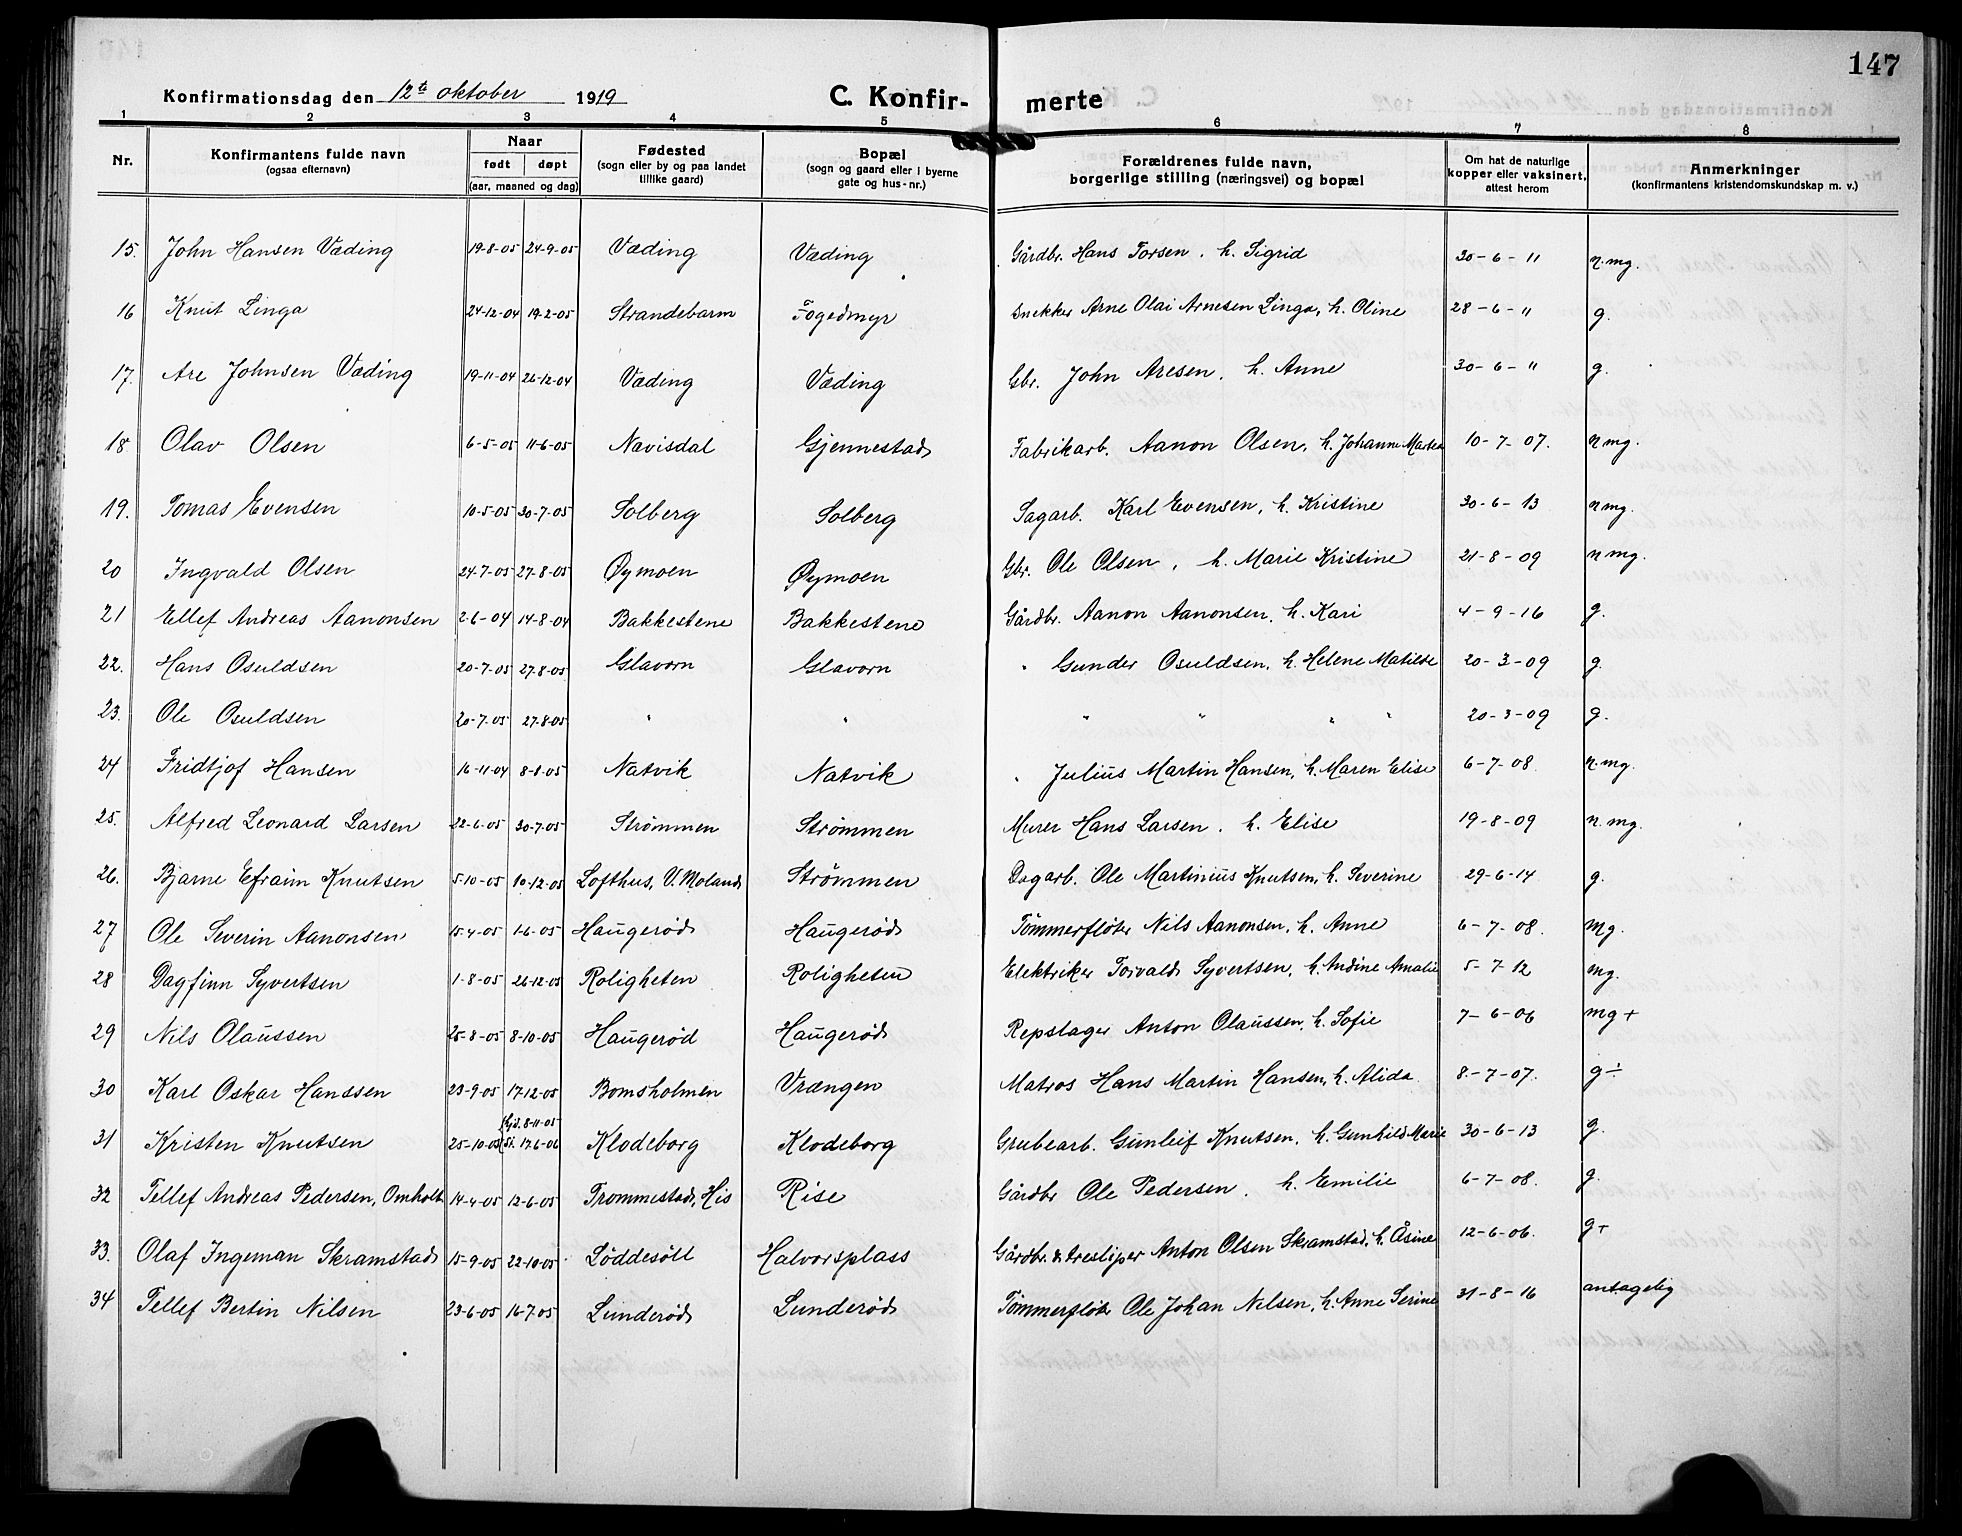 147
Konfirmationsdag den 12te oktober 1919 C. Konfir- merte
1 2 3 4 5 6 7 8
Nr. Konfirmantens fulde navn (ogsaa efternavn) Naar født døpt (aar, maaned og dag) Fødested (sogn eller by og paa landet tillike gaard) Bopæl (sogn og gaard eller i byerne gate og hus-nr.) Forældrenes fulde navn, borgerlige stilling (næringsvei) og bopæl Om hat de naturlige kopper eller vaksinert, attest herom Anmerkninger (konfirmantens kristendomskundskap m. v.)
15. John Hansen Væding 19-8-05 24-9-05 Væding Væding Gårdbr. Hans Torsen. h. Sigrid 30-6-11 n.mg.
16 Knut Linga 24-12-04 19-2-05 Strandebarm Fogedmyr Snekker Arne Olai Arnesen Linga, h. Oline 28-6-11 g.
17. Are Johnsen Væding 19-11-04 26-12-04 Væding Væding Gbr. John Aresen. h. Anne 30-6-11 g.
18. Olav Olsen 6-5-05 11-6-05 Navisdal Gjennestad Fabrikarb. Aanon Olsen, h. Johanne Martea 10-7-07. n mg.
19. Tomas Evensen 10-5-05 30-7-05 Solberg Solberg Sagarb. Karl Evensen, h. Kristine 30-6-13 n mg.
20 Ingvald Olsen 24-7-05 27-8-05 Øymoen Øymoen Gbr. Ole Olsen, h. Marie Kristine 21-8-09 n mg.
21 Ellef Andreas Aanonsen 2-6-04 14-8-04 Bakkestene Bakkestene Gårdbr. Aanon Aanonsen, h. Kari 4-9-16 g.
22. Hans Osuldsen 20-7-05 27-8-05 Glavorn Glavorn " Gunder Osuldsen, h. Helene Matilde 20-3-09 g.
23. Ole Osuldsen 20-7-05 27-8-05 " " " " " " 20-3-09 g.
24 Fridtjof Hansen 16-11-04 8-1-05 Natvik Natvik " Julius Martin Hansen, h. Maren Elise 6-7-08. n.mg.
25. Alfred Leonard Larsen 22-6-05 30-7-05 Strømmen Strømmen Murer Hans Larsen. h. Elise 19-8-09 n.mg.
26. Bjarne Efraim Knutsen 5-10-05 10-12-05 Lofthus, V. Moland Strømmen Dagarb. Ole Martinius Knutsen, h. Severine 29-6-14 g.
27 Ole Severin Aanonsen 15-4-05 1-6-05 Haugerød Haugerød Tømmerfløter Nils Aanonsen, h. Anne 6-7-08. mg.
28 Dagfinn Syvertsen 1-8-05 26-12-05 Roligheten Roligheten Elektriker Torvald Syvertsen, h. Andine Amalie 5-7-12 mg.
29 Nils Olaussen 25-8-05 8-10-05 Haugerød Haugerød Repslager Anton Olaussen, h. Sofie 7-6-06 mg+
30 Karl Oskar Hanssen 23-9-05 17-12-05 Bomsholmen Vrængen Matros Hans Martin Hansen, h. Alida. 8.-7-07. g÷
31 Kristen Knutsen 25-10-05 hjd. 8-11-05 st. 17-6-06 Klodeborg Klodeborg Grubearb. Gunleif Knutsen, h. Gunhild Marie 30-6-13 g.
32 Tellef Andreas Pedersen, Omholt 14-4-05 12-6-05 Trommestad, His Rise Gårdbr Ole Pedersen. h. Emilie 6-7-08. g.
33. Olaf Ingeman Skramstad 15-9-05 22-10-05 Løddesøll Halvorsplass Gårdbr. & tresliper Anton Olsen Skramstad, h. Åsine 12-6-06. g+
34 Tellef Bertin Nilsen 23-6-05 16-7-05 Lunderød Lunderød Tømmerfløter Ole Johan Nilsen, h. Anne Serine 31-8-16 antagelig